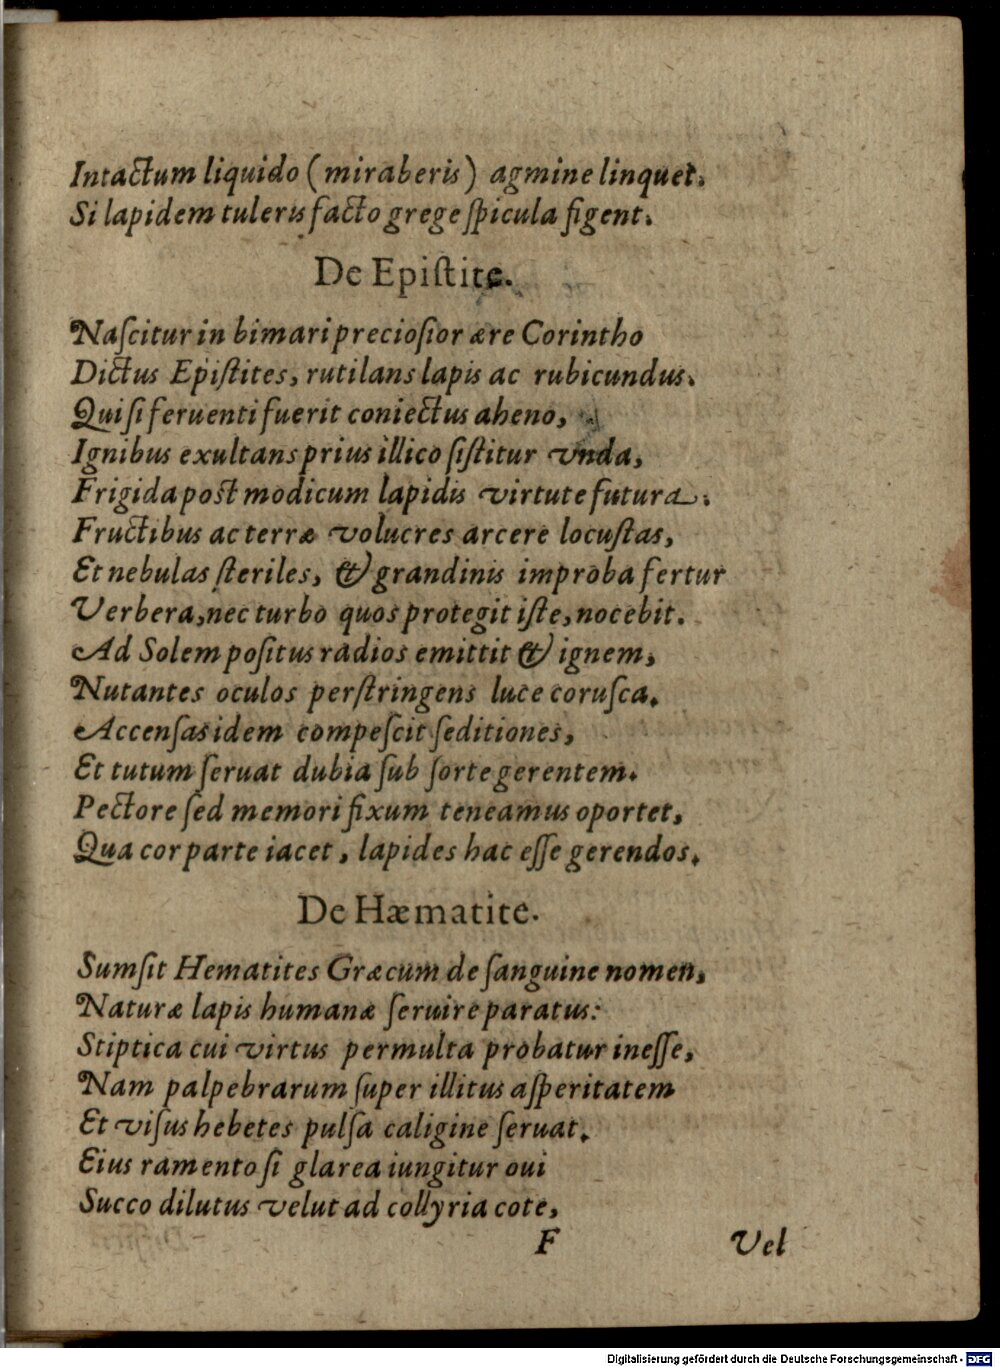 Intactum liquido (miraberis) agmine linquet.
Si lapidem tuleris facto grege ſpicula figent.
De Epiſtite.
Naſcitur in bimari precioſior ære Corintho
Dictus Epiſtites, rutilans lapis ac rubicundus.
Qui ſi feruenti fuerit coniectus aheno,
Ignibus exultans prius illico ſiſtitur vnda,
Frigida post modicum lapidis virtute futura.
Fructibus ac terræ volucres arcere locuſtas,
Et nebulas ſteriles, & grandinis improba fertur
Verbera, nec turbo quos protegit iſte, nocebit.
Ad Solem poſitus radios emittit & ignem,
Nutantes oculos perſtringens luce coruſca.
Accenſas idem compeſcit ſeditiones,
Et tutum ſeruat dubia ſub ſorte gerentem.
Pectore ſed memori fixum teneamus oportet,
Qua cor parte iacet, lapides hac eſſe gerendos.
De Hæmatite.
Sumſit Hematites Græcum de ſanguine nomen,
Naturæ lapis humanæ ſeruire paratus:
Stiptica cui virtus permulta probatur ineſſe,
Nam palpebrarum ſuper illitus aſperitatem
Et viſus hebetes pulſa caligine ſeruat.
Eius ramento ſi glarea iungitur oui
Succo dilutus velut ad collyria cote,
F Vel
Digitalisierung gefördert durch die Deutsche Forschungsgemeinschaft - DFG